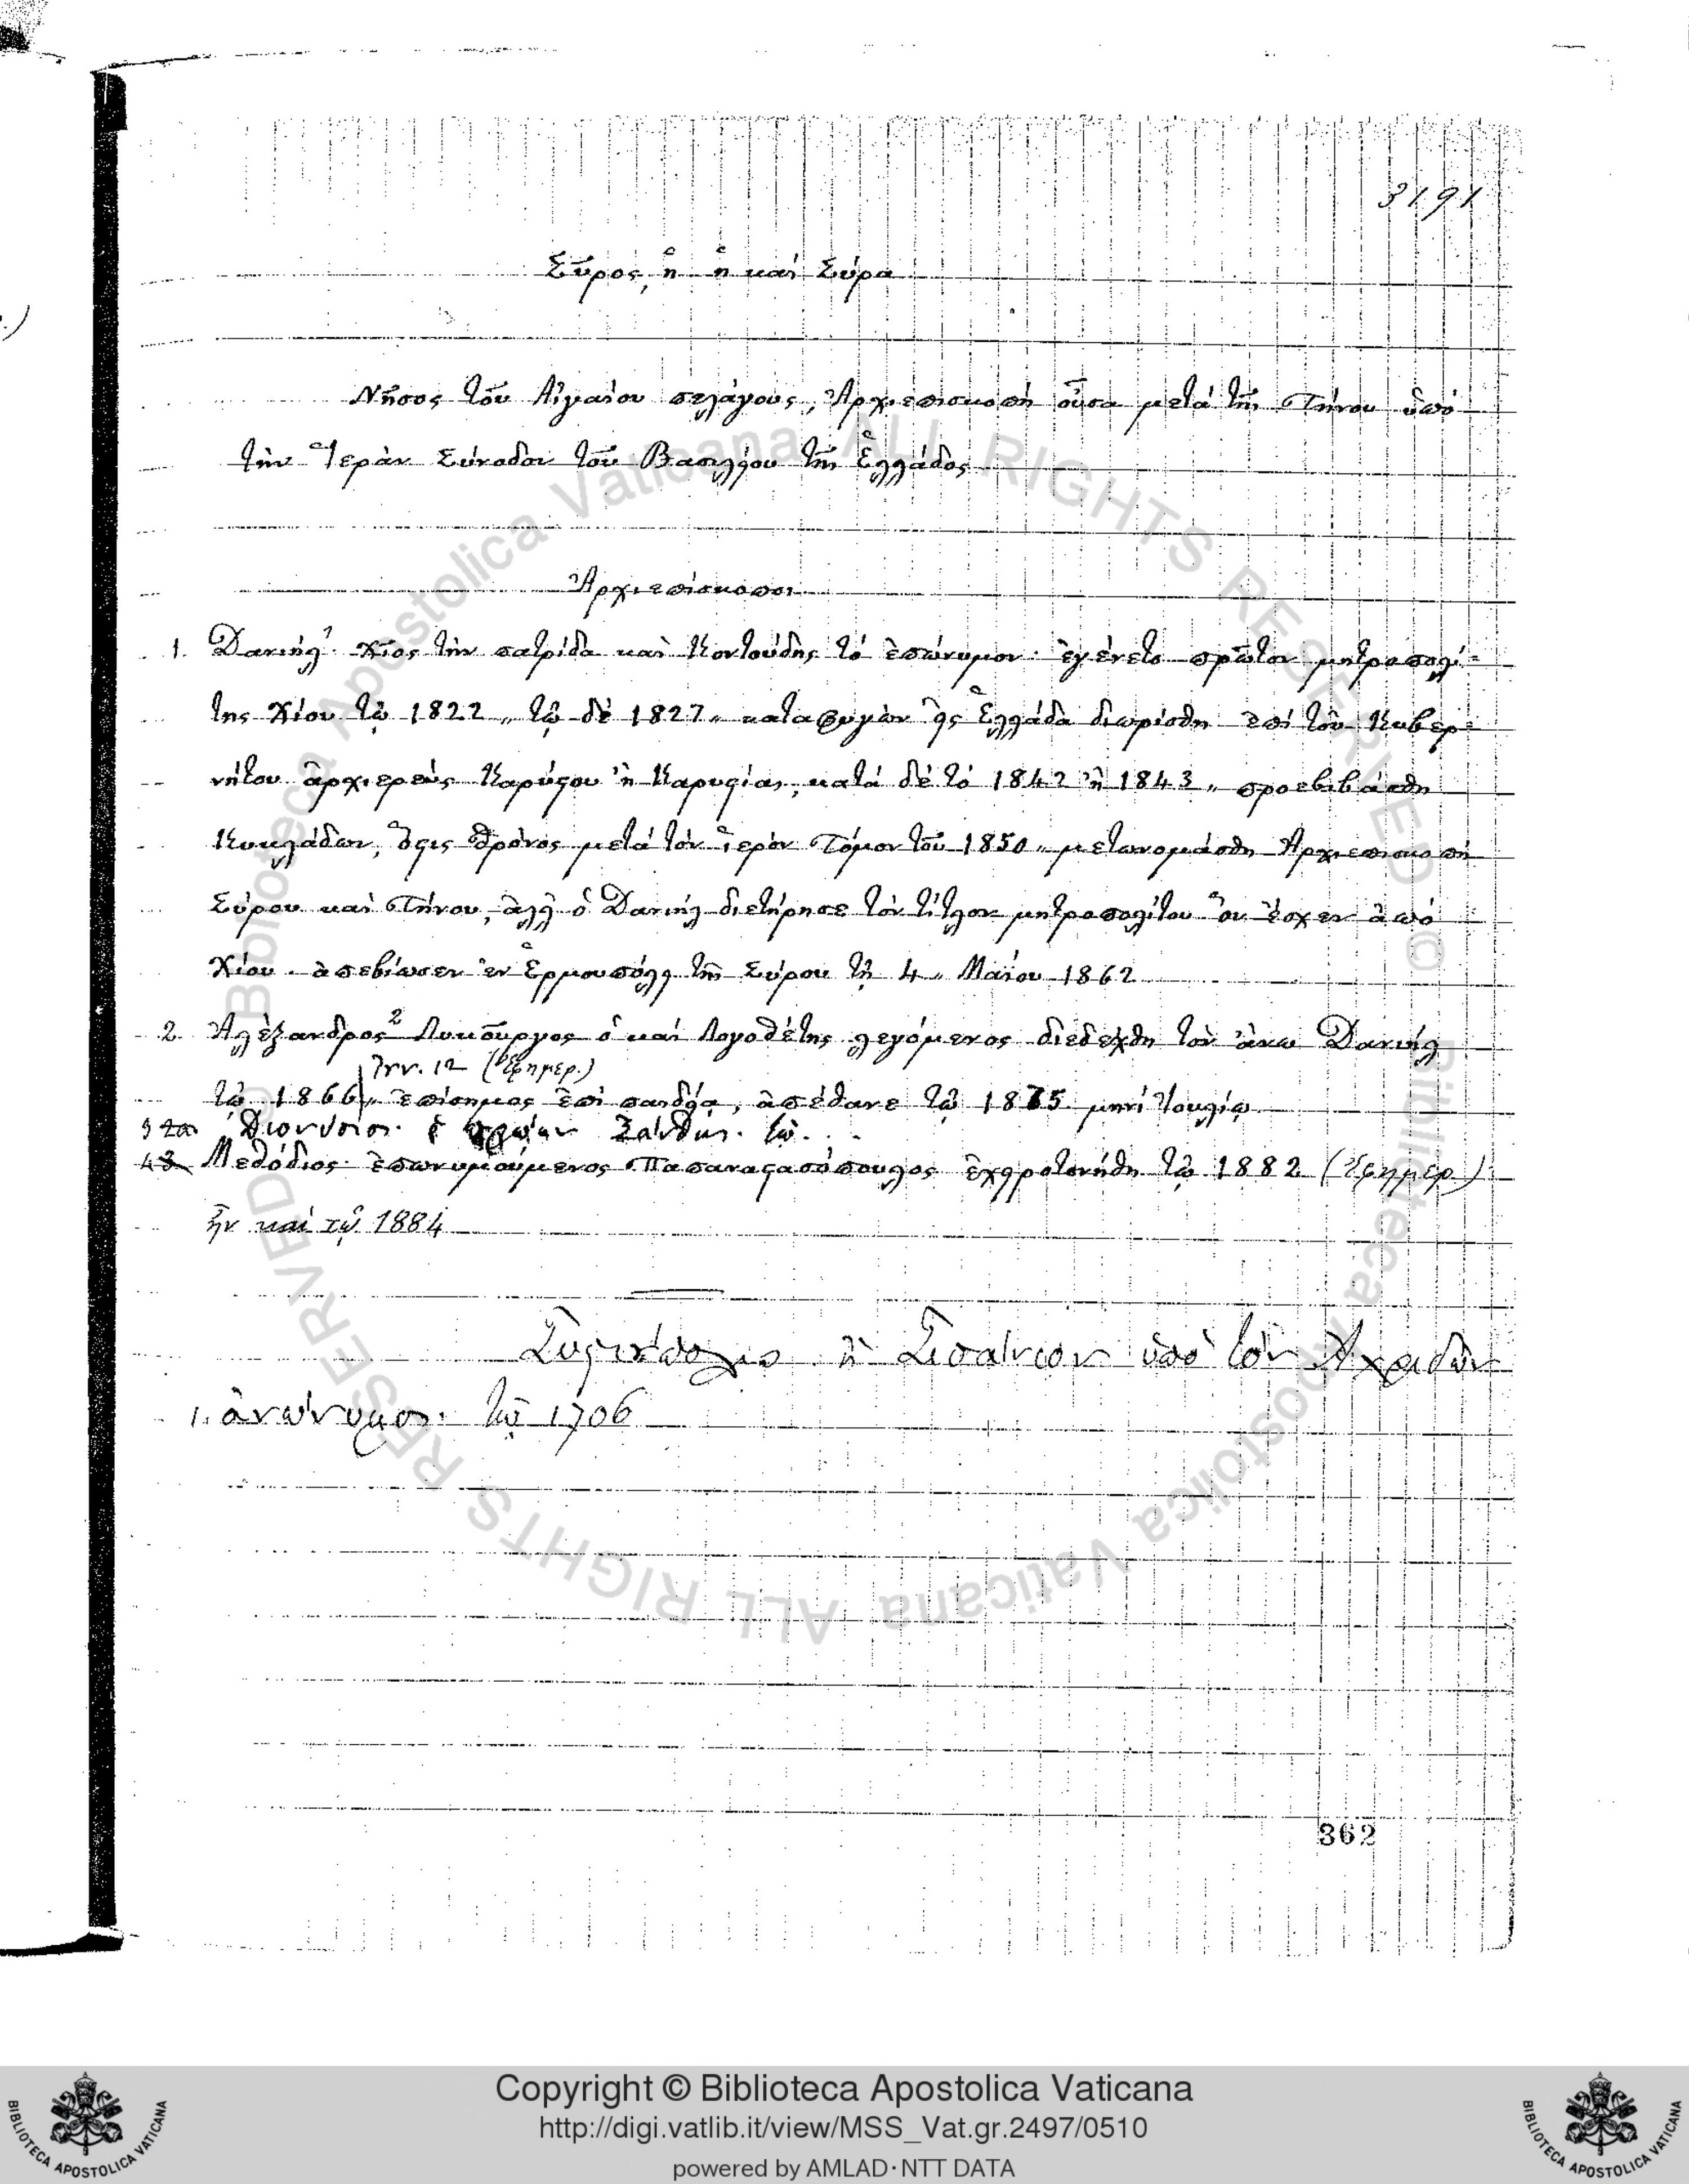 3191
Σῦρος, ἢ ἡ καὶ Σύρα
Νῆσος τοῦ Αἰγαίου πελάγους, Ἀρχιεπισκοπὴ οὖσα μετὰ τῆς Τήνου ὑπὸ
τὴν Ἱερὰν Σύνοδον τοῦ Βασιλείου τῆς Ἑλλάδος
Ἀρχιεπίσκοποι
1. Δανιήλ¹ Χῖος τὴν πατρίδα καὶ Κοντούδης τὸ ἐπώνυμον· ἐγένετο πρῶτον μητροπολί-
της Χίου τῷ 1822 „ τῷ δὲ 1827 „ καταφυγὼν εἰς Ἑλλάδα διωρίσθη ἐπὶ τοῦ Κυβερ-
νήτου ἀρχιερεὺς Καρύστου ἢ Καρυστίας, κατὰ δὲ τὸ 1842 ἢ 1843 „ προεβιβάσθη
Κυκλάδων, ὅστις θρόνος μετὰ τὸν ἱερὸν Τόμον τοῦ 1850 „ μετωνομάσθη Ἀρχιεπισκοπὴ
Σύρου καὶ Τήνου, ἀλλ' ὁ Δανιὴλ διετήρησε τὸν τίτλον μητροπολίτου ὃν ἔσχεν ἀπὸ
Χίου. ἀπεβίωσεν ἐν Ἑρμουπόλει τῆς Σύρου τῇ 4 „ Μαΐου 1862
2. Ἀλέξανδρος² Λυκοῦργος ὁ καὶ Λογοθέτης λεγόμενος διεδέχθη τὸν ἄνω Δανιὴλ
Ἰνν. 12 (Ἐφημερ.)
τῷ 1866 „ ἐπίσημος ἐπὶ παιδείᾳ, ἀπέθανε τῷ 1875 μηνὶ Ἰουλίῳ
3 Διονύσιος. ὁ πρώην Ξάνθης. τῷ . . .
43 Μεθόδιος ἐπωνυμούμενος Παπαναστασόπουλος ἐχειροτονήθη τῷ 1882 (Ἐφημερ.)
ἦν καὶ τῷ 1884
ἢ Σισάνιον ὑπὸ τὸν Ἀχριδῶν
1. ἀνώνυμος. τῷ 1706
362
Biblioteca Apostolica Vaticana ALL RIGHTS RESERVED ©
Biblioteca Apostolica Vaticana ALL RIGHTS RESERVED ©
Copyright © Biblioteca Apostolica Vaticana
http://digi.vatlib.it/view/MSS_Vat.gr.2497/0510
powered by AMLAD·NTT DATA
BIBLIOTECA APOSTOLICA VATICANA
BIBLIOTECA APOSTOLICA VATICANA